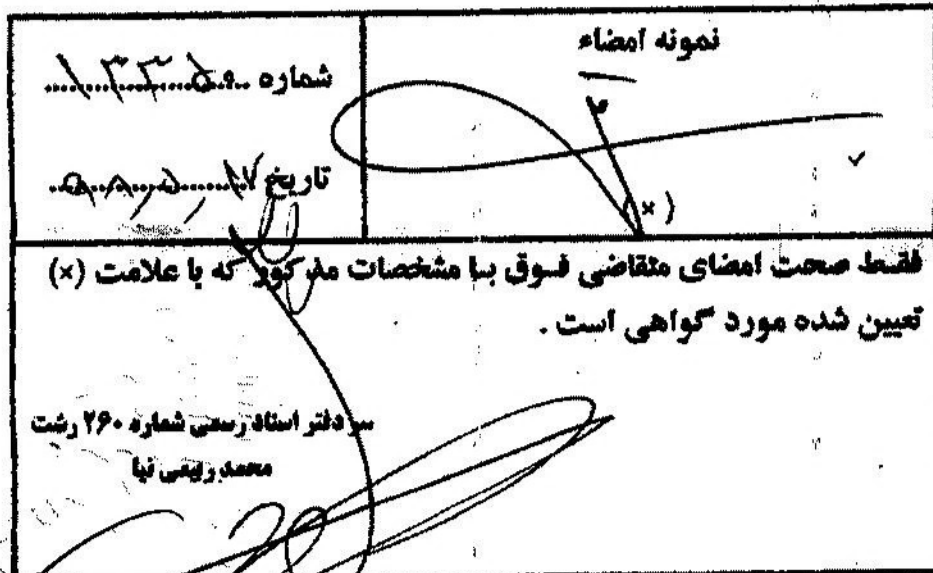 نمونه امضاء
(×)
شماره ۱۳۳۵۰
تاریخ
فقط صحت امضای متقاضی فوق با مشخصات مذکور که با علامت (×)
تعیین شده مورد گواهی است .
سر دفتر اسناد رسمی شماره ۲۶۰ رشت
محمد ربیعی نیا